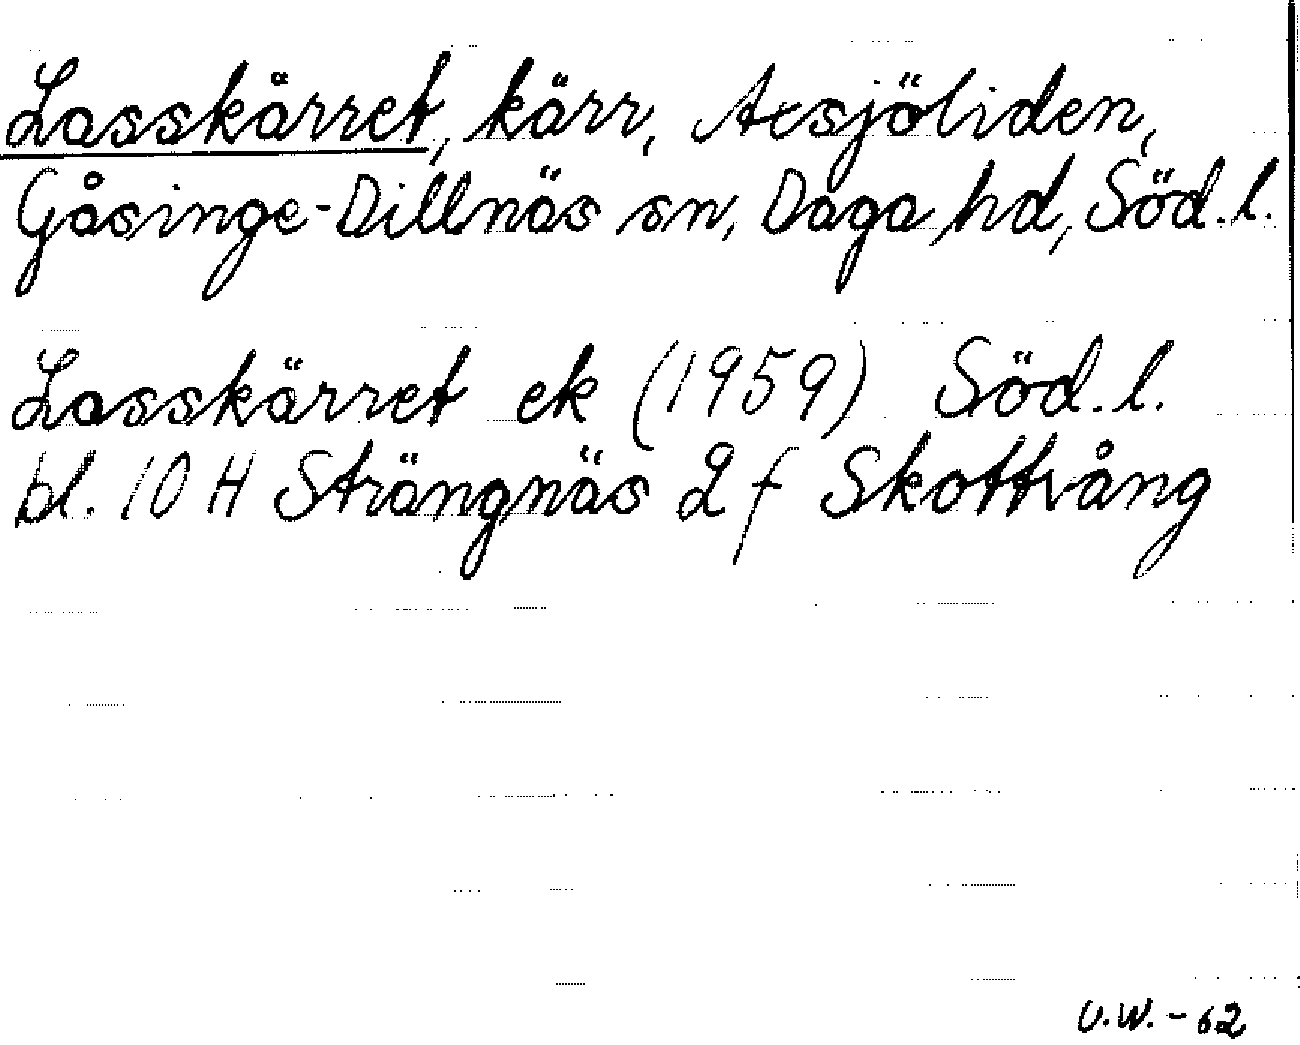 Lasskärret, kärr, Acsjöliden,
Gåsinge-Dillnäs sn, Daga hd, Söd.l.
Lasskärret ek (1959) Söd.l.
bl. 10 H Strängnäs 2 f Skottvång
U.W. - 62